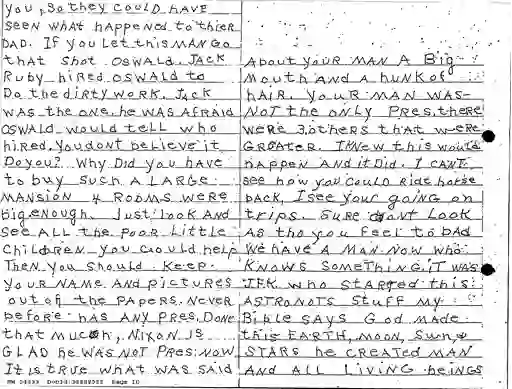 you, so they could HAVE
SEEN WHAT HAPPENED to thier
DAD. IF you LET this MAN GO
that shot OSWALD. JACK
Ruby hired OSWALD to
Do the dirty work. JACK
WAS the ONE he WAS AFRAID
OSWALD would tell who
hired, you dont believe it
Do you? Why Did you have
to buy such A LARGE
MANSION 4 Rooms were
big enough. Just look AND
see ALL the poor Little
Children you could help
Then you should keep
your NAME AND pictures
out of the PAPERS. Never
before has ANY PRES, DONE
that much, Nixon is
GLAD he WAS NOT PRES. NOW
It is true what was said
About your MAN A Big
Mouth AND A hunk of
hAIR. your MAN WAS
NOT the only Pres, there
were 3 others that were
GREATER. I knew this would
happen and it Did. I CANT
see how you could Ride horse
back, I see your going on
trips. Sure dont Look
As tho you Feel to bad
We have A MAN Now who
KNOWS SOMETHING. IT WAS
JFK who STARTED this
ASTRONOTS Stuff My
Bible SAYS God made
this EARTH, MOON, Sun &
STARS he CREATED MAN
And ALL LIVING beings
Page 10